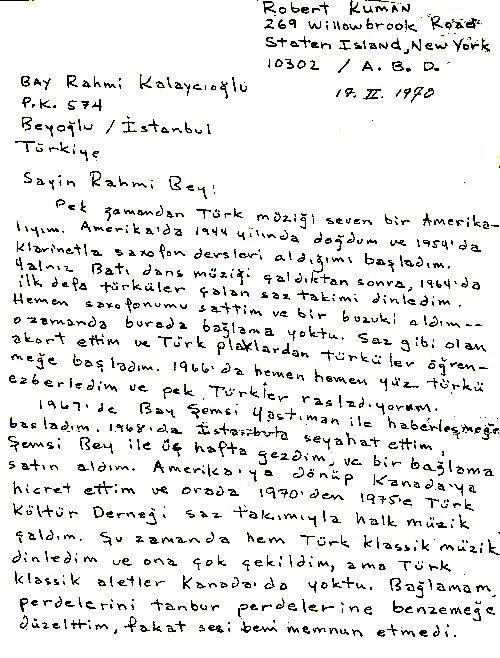 Robert KUMAN
269 Willowbrook Road
Staten Island, New York
10302 / A. B. D.
BAY Rahmi Kalaycıoğlu
P.K. 574
17. II. 1970
Beyoğlu / İstanbul
Türkiye
Sayin Rahmi Bey!
Pek zamandan Türk müziği seven bir Amerika-
lıyım. Amerika'da 1944 yılında doğdum ve 1954'da
klarinetla saxofon dersleri aldığımı başladım.
Yalnız Batı dans müziği çaldıktan sonra, 1964'da
ilk defa türküler çalan saz takimi dinledim.
Hemen saxofonumu sattım ve bir buzuki aldım--
o zamanda burada bağlama yoktu. Saz gibi olan
akort ettim ve Türk plaklardan türküler öğren-
meğe başladım. 1966'da hemen hemen yüz türkü
ezberledim ve pek Türkler rasladıyorum.
1967'de Bay Şemsi Yastıman ile haberleşmeğe
basladım. 1968'da İstanbula seyahat ettim,
Şemsi Bey ile üç hafta gezdim, ve bir bağlama
satın aldım. Amerika'ya dönüp Kanada'ya
hicret ettim ve orada 1970'den 1975'e Türk
Kültür Derneği saz takımıyla halk müzik
çaldım. Şu zamanda hem Türk klassik müzik
dinledim ve ona çok çekildim, ama Türk
klassik aletler Kanada'da yoktu. Bağlamam,
perdelerini tanbur perdelerine benzemeğe
düzelttim, fakat sesi beni memnun etmedi.